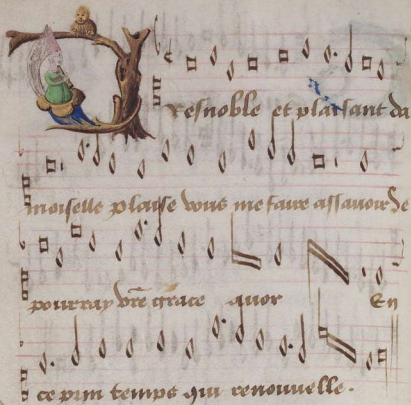 Tresnoble et plaisant da
moiselle plaise vous me faire assavoir Se
pourray vrē grace avor En
ce prin temps qui renouvelle.